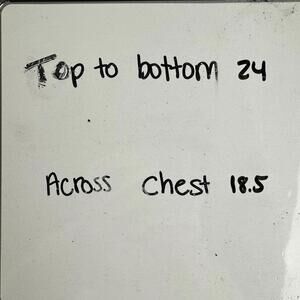 Top to bottom 24
Across Chest 18.5